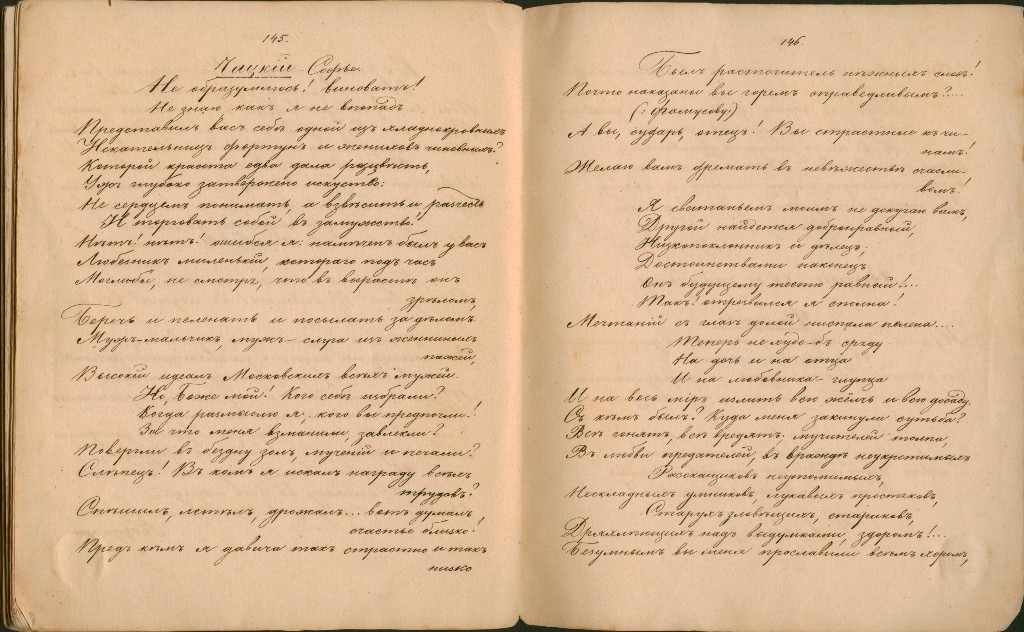 145.
Чацкiй Софье.
Не образумлюсь! виноватъ!
Не знаю какъ я не впопадъ
Представилъ васъ себѣ одной изъ хладнокровныхъ
Искательницъ фортунъ и жениховъ чиновныхъ?
Которой красота едва дала разцвѣсть,
Ужъ глубоко затвержено искуство:
Не сердцемъ понимать, а взвѣсить и расчесть
И торговать собой въ замужство!
Нѣтъ! нѣтъ! ошибся я: намѣченъ былъ у васъ
Любезникъ миленькiй, котораго подъ часъ
Моглибы, не смотря, что въ возрастѣ онъ
зрѣломъ
Беречь и пеленать и посылать за дѣломъ.
Мужъ-мальчикъ, мужъ-слуга изъ жениныхъ
пажей,
Высокiй идеалъ Московскихъ всѣхъ мужей.
Но, Боже мой! Кого себѣ избрали?
Когда размыслю я, кого вы предпочли!
За что меня взманили, завлекли?
Повергли въ бездну золъ, мученiй и печали?
Слѣпецъ! Въ комъ я искалъ награду всѣхъ
трудовъ?
Спѣшилъ, летѣлъ, дрожалъ... вотъ думалъ
счастье близко!
Предъ кѣмъ я давича такъ страстно и такъ
низко
146.
Былъ расточитель нѣжныхъ словъ!
Почто наказаны вы горемъ справедливымъ?....
(: Фамусову)
А вы, сударь, отецъ! Вы страстные къ чи-
намъ!
Желаю вамъ дремать въ невѣжествѣ счасли-
вомъ!
Я сватаньемъ моимъ не докучаю вамъ,
Другой найдется добронравный,
Низкопоклонникъ и дѣлецъ;
Достоинствами наконецъ
Онъ будущему тестю равный!...
Такъ! отрезвился я сполна!
Мечтанiй съ глазъ долой ниспала пелена....
Теперь не худо-бъ сряду
На дочь и на отца
И на любовника-глупца
И на весь мiръ излить всю жёлчь и всю досаду.
Съ кѣмъ былъ? Куда меня закинула судьба?
Всѣ гонятъ, всѣ вредятъ, мучителей толпа,
Въ любви предателей, въ враждѣ неукротимыхъ
Разскащиковъ неутомимыхъ,
Нескладныхъ умниковъ, лукавыхъ простяковъ,
Старухъ зловѣщихъ, стариковъ,
Дряхлѣющихъ надъ выдумками, вздоромъ!...
Безумнымъ вы меня прославили всѣмъ хоромъ,